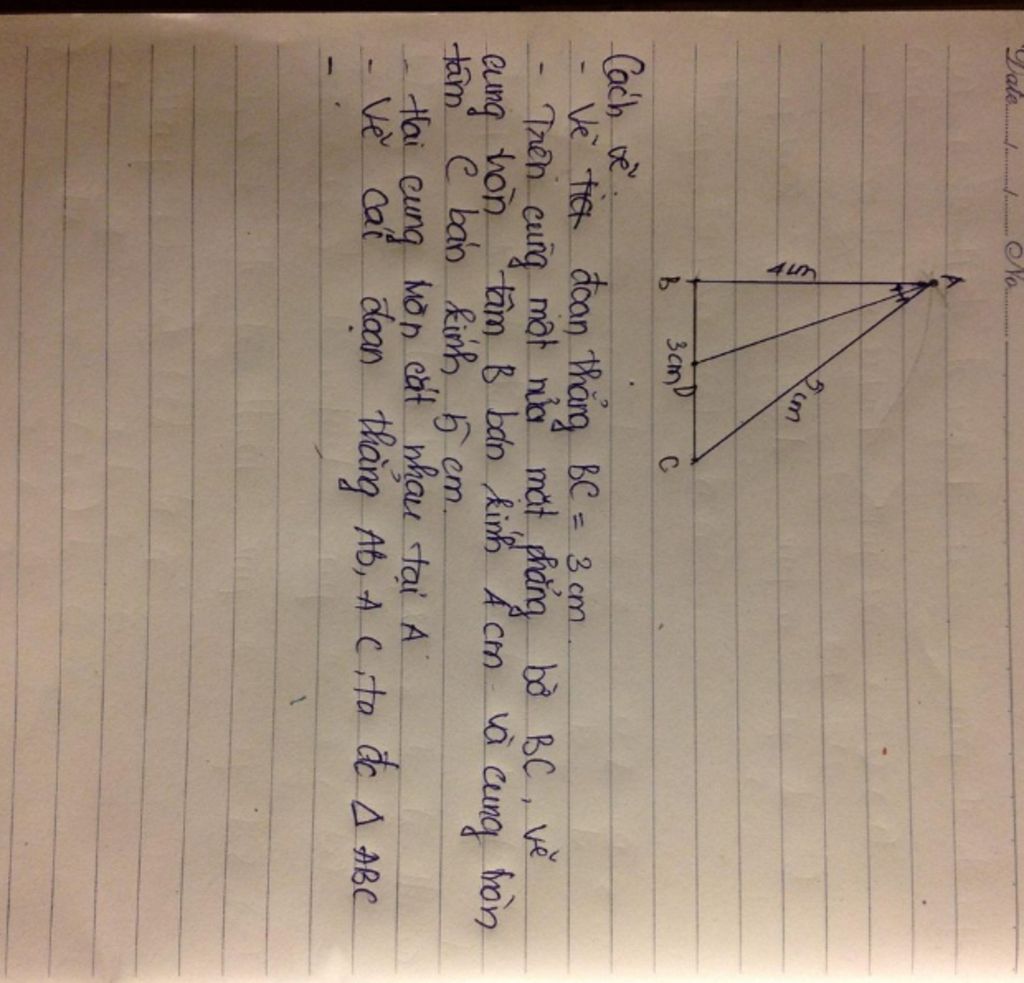 Date....../....../...... No......
A
4 cm
5 cm
B 3 cm D C
Cách vẽ:
- Vẽ đoạn thẳng BC = 3 cm.
- Trên cùng một nửa mặt phẳng bờ BC, vẽ
cung tròn tâm B bán kính 4 cm và cung tròn
tâm C bán kính 5 cm.
- Hai cung tròn cắt nhau tại A
- Vẽ các đoạn thẳng AB, AC, ta đc Δ ABC
-